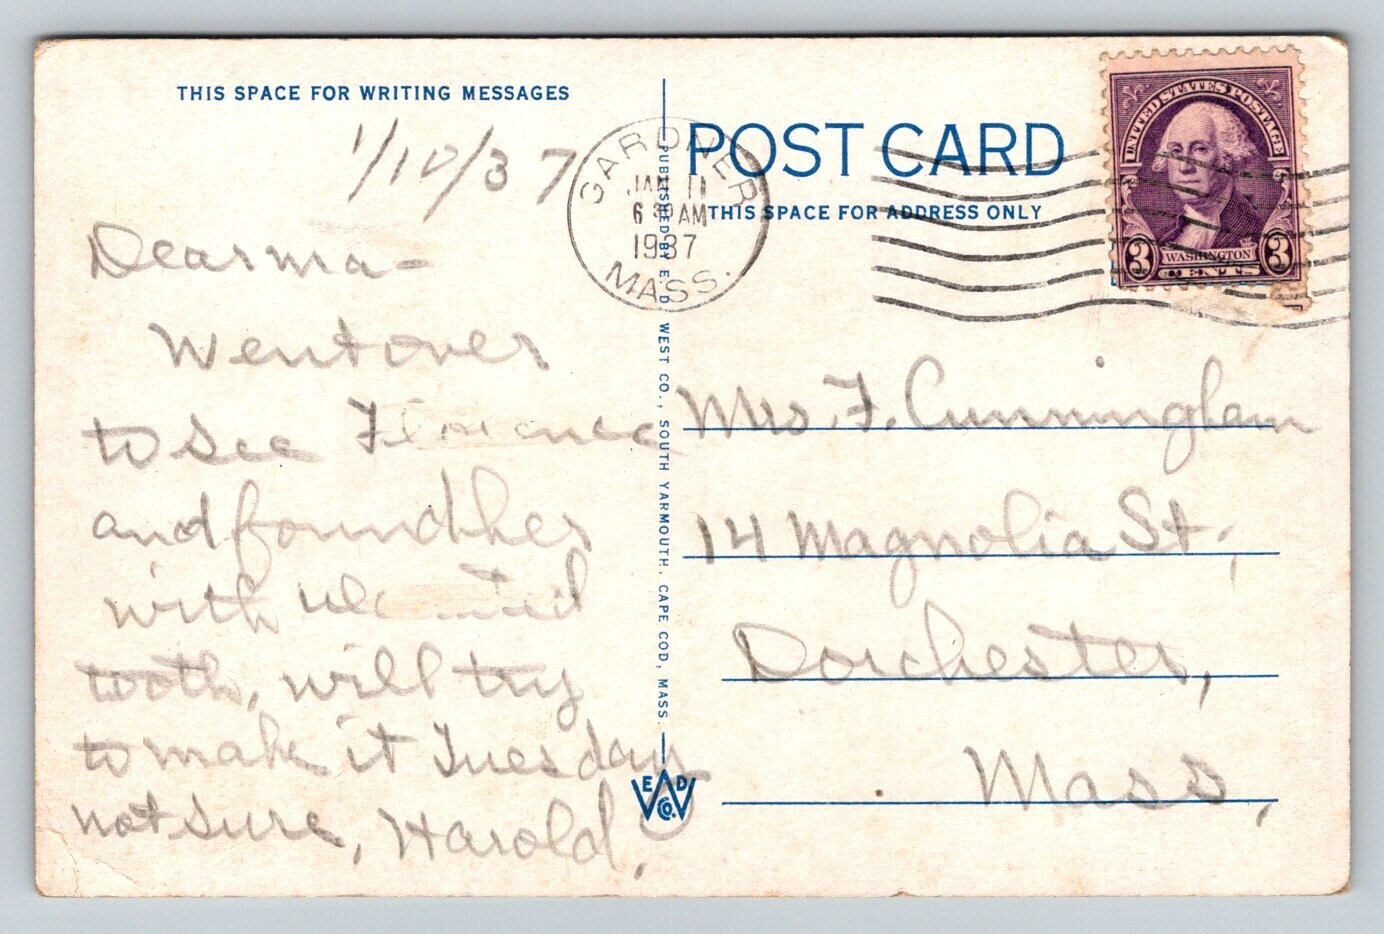 THIS SPACE FOR WRITING MESSAGES
1/10/37
Dear ma-
Went over
to see Florence
and found her
with
tooth, will try
to make it Tuesday
not sure, Harold,
PUBLISHED BY E. D. WEST CO., SOUTH YARMOUTH, CAPE COD, MASS.
E D
W
CO.
GARDNER
JAN 11
6 30 AM
1937
MASS.
POST CARD
THIS SPACE FOR ADDRESS ONLY
UNITED STATES POSTAGE
3 WASHINGTON 3
CENTS
Mrs. F. Cunningham
14 Magnolia St.,
Dorchester,
Mass,